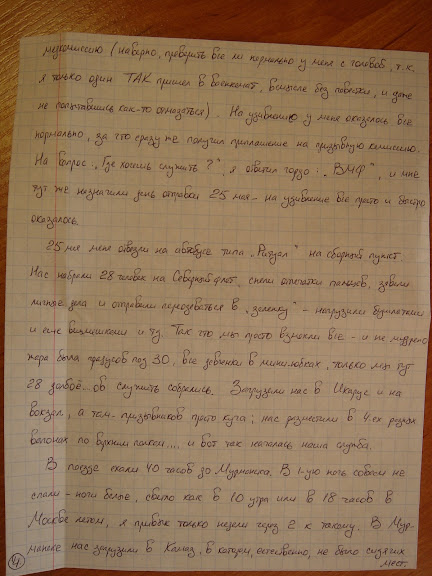 медкомиссию (наверно, проверить все ли нормально у меня с головой, т.к.
я только один ТАК пришел в военкомат, вообще без повестки, и даже
не попытавшись как-то отмазаться). На удивление у меня оказалось все
нормально, за что сразу же получил приглашение на призывную комиссию.
На вопрос: „Где хочешь служить?", я ответил гордо: „ВМФ", и мне
тут же назначили день отправки 25 мая - на удивление все просто и быстро
оказалось.
25 мая меня отвезли на автобусе типа „Ритуал" на сборный пункт.
Нас набрали 28 человек на Северный флот, сняли отпечатки пальцев, завели
личные дела и отправили переодеваться в „зеленку" - нагрузили бушлатами
и еще вещмешками и т.д. Так что мы просто взмокли все - и не мудрено
жара была градусов под 30, все девчонки в мини-юбках, только мы тут
28 долбоё...ов служить собрались. Загрузили нас в Икарус и на
вокзал, а там - призывников просто куча; нас разместили в 4-ех разных
вагонах по верхним полкам.... и вот так началась наша служба.
В поезде ехали 40 часов до Мурманска. В 1-ую ночь совсем не
спали - ночи белые, светло как в 10 утра или в 18 часов в
Москве летом, я привык только недели через 2 к такому. В Мур-
манске нас загрузили в Камаз, в котором, естественно, не было сидячих
мест.